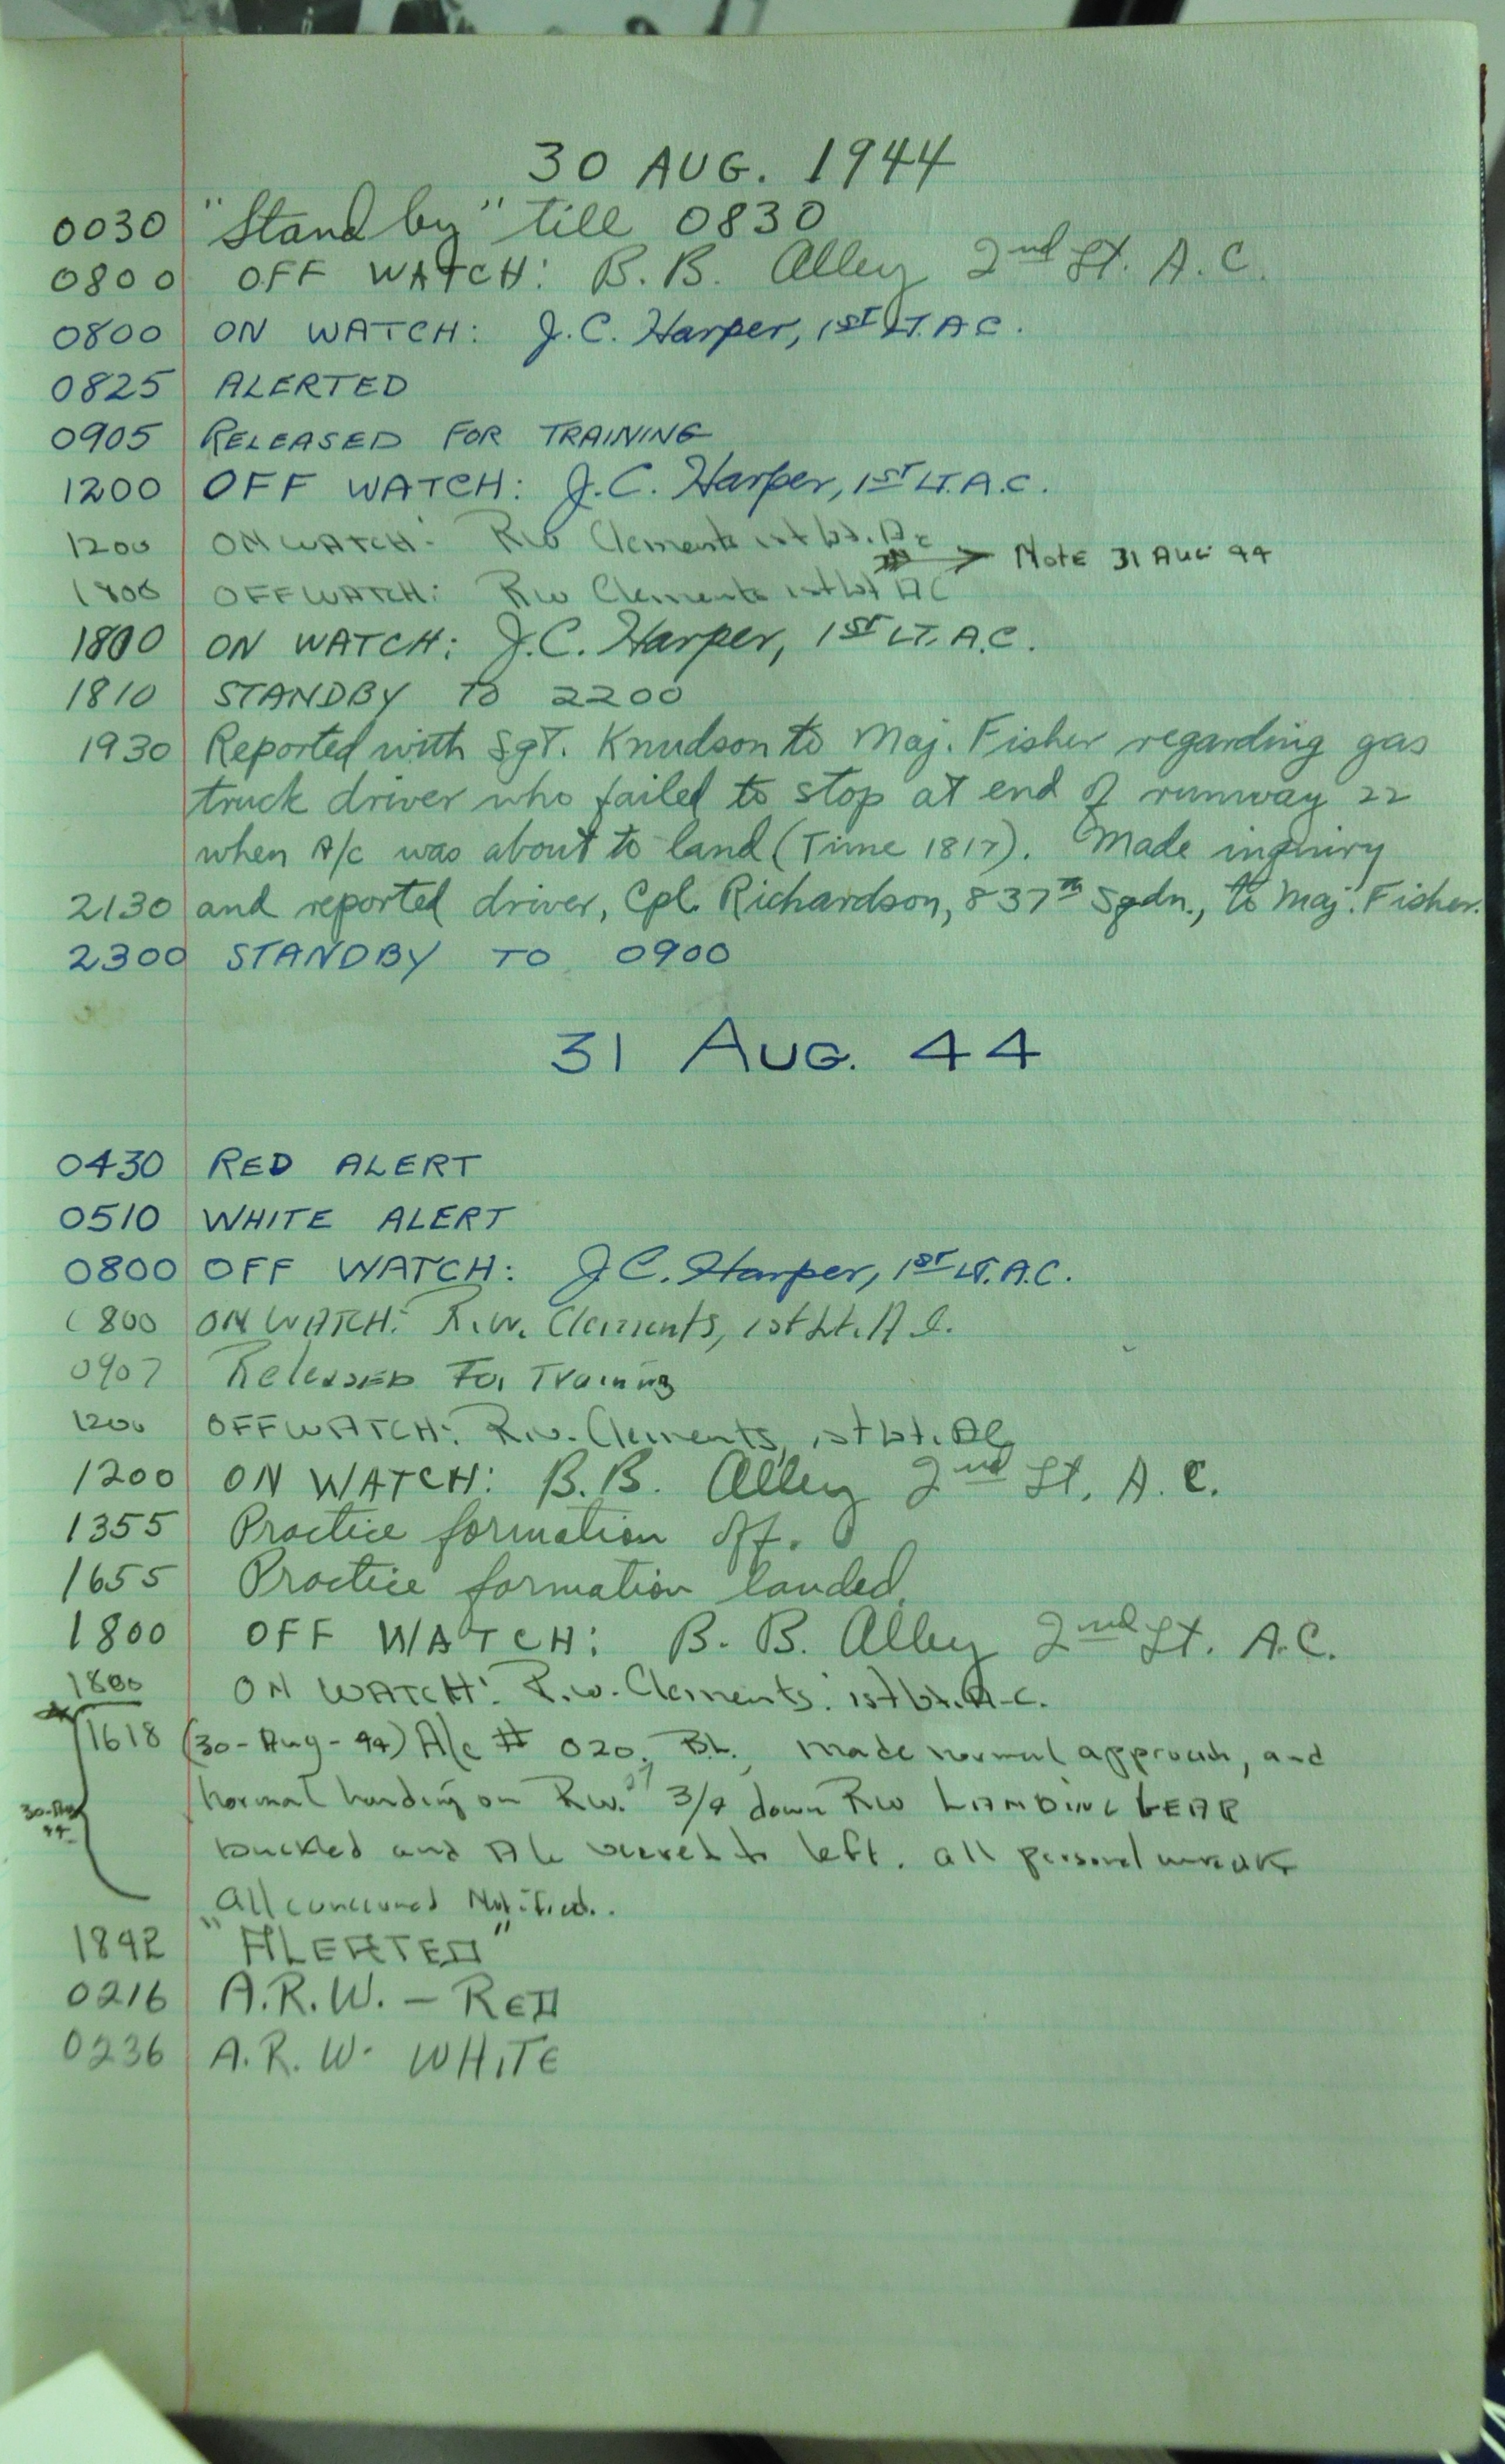 30 AUG. 1944
0030 "Stand by" till 0830
0800 OFF WATCH: B. B. Alley 2nd Lt. A.C.
0800 ON WATCH: J.C. Harper, 1ST LT. A C.
0825 ALERTED
0905 RELEASED FOR TRAINING
1200 OFF WATCH: J.C. Harper, 1ST LT. A.C.
1200 ON WATCH: RW Clements 1st Lt. AC
→ Note 31 AUG 44
1800 OFF WATCH: RW Clements 1st Lt AC
1800 ON WATCH: J.C. Harper, 1ST LT. A.C.
1810 STANDBY TO 2200
1930 Reported with Sgt. Knudson to Maj. Fisher regarding gas
truck driver who failed to stop at end of runway 22
when A/c was about to land (Time 1817). Made inquiry
2130 and reported driver, Cpl. Richardson, 837th Sqdn., to Maj. Fisher.
2300 STANDBY TO 0900
31 AUG. 44
0430 RED ALERT
0510 WHITE ALERT
0800 OFF WATCH: J C. Harper, 1ST LT. A.C.
0800 ON WATCH: R.W. Clements, 1st Lt. A C.
0907 Released For Training
1200 OFF WATCH: R.W. Clements, 1st Lt. AC
1200 ON WATCH: B.B. Alley 2nd Lt. A.C.
1355 Practice formation off.
1655 Practice formation landed.
1800 OFF WATCH: B. B. Alley 2nd Lt. A.C.
1800 ON WATCH: R.W. Clements. 1st Lt. A.C.
1618 (30-Aug-44) A/c # 020, BL, made normal approach, and
30-Aug
44
normal landing on RW. 3/4 down RW LANDING GEAR
buckled and A/c veered to left. all personel
All concerned Notified..
1842 "ALERTED"
0216 A.R.W. - RED
0236 A.R.W. WHITE